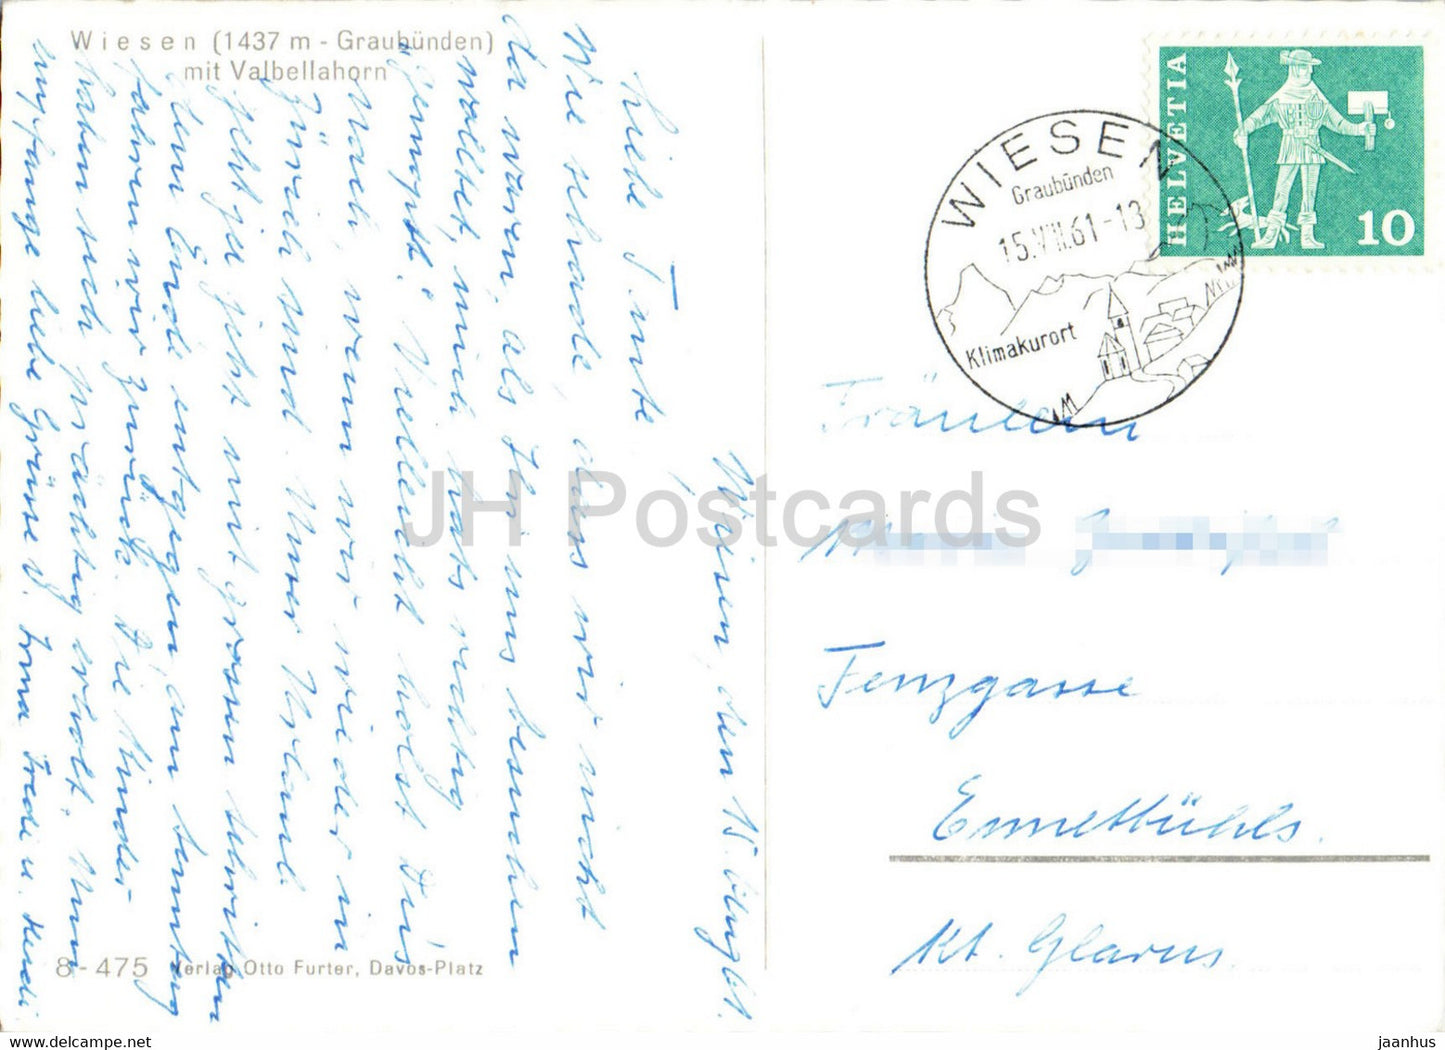 Wiesen (1437 m - Graubünden)
mit Valbellahorn
Wiesen, den 15. Aug. 61.
Liebe Tante,
Wie schade, dass wir nicht
da waren, als Ihr uns besuchen
wolltet, mich hats richtig
"gmopst." Vielleicht holst Dis
nach, wenn wir wieder in
Zürich sind. Unser Urlaub
geht ja jetzt mit grossen Schritten
dem Ende entgegen, am Samstag
fahren wir zurück. Die Kinder
haben sich prächtig erholt. Nun
empfange liebe Grüsse v. Irma Fredi u. Heidi.
8-475 Verlag Otto Furter, Davos-Platz
HELVETIA
10
WIESEN
Graubünden
15.VIII.61-13
Klimakurort
Fräulein
Fenzgasse
Ennetbühls.
Kt. Glarus.
JH Postcards
www.delcampe.net
jaanhus